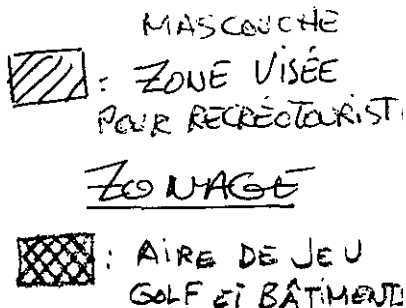 MASCOUCHE
: ZONE VISÉE
POUR RECRÉOTOURISTI
ZONAGE
: AIRE DE JEU
GOLF ET BÂTIMENTS